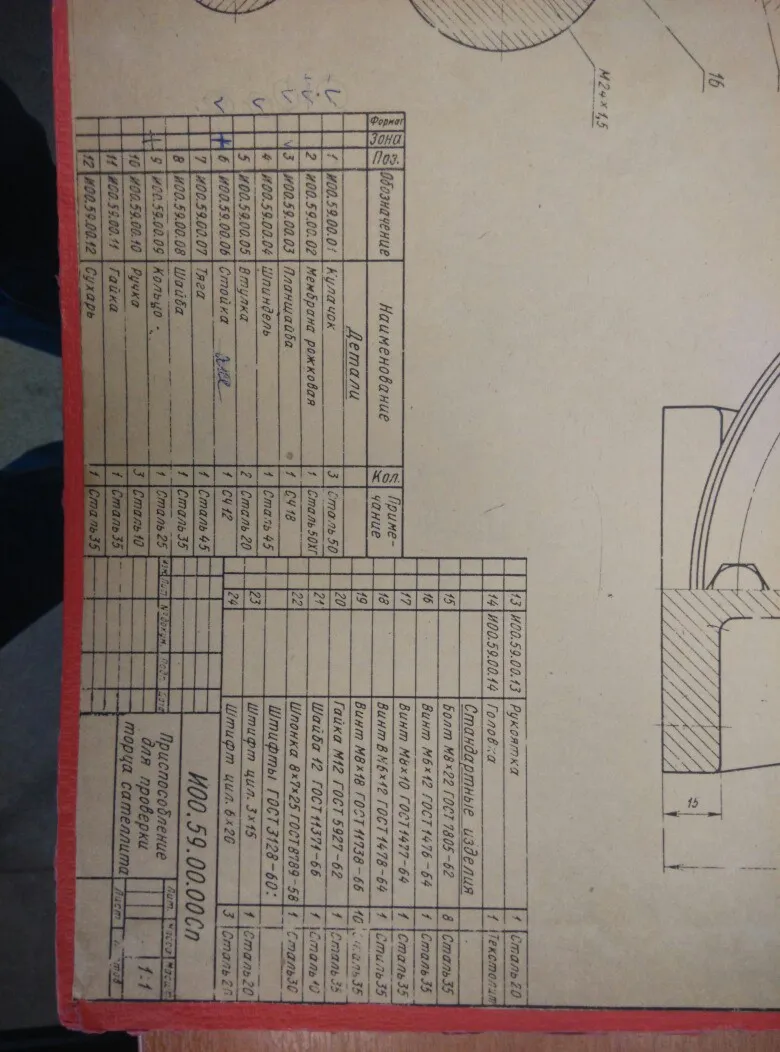 М24×1,5
16
15
Формат Зона Поз. Обозначение Наименование Кол. Приме-чание
Детали
1 И00.59.00.01 Кулачок 3 Сталь 50
2 И00.59.00.02 Мембрана рожковая 1 Сталь 50ХГ
3 И00.59.00.03 Планшайба 1 СЧ 18
4 И00.59.00.04 Шпиндель 1 Сталь 45
5 И00.59.00.05 Втулка 2 Сталь 20
6 И00.59.00.06 Стойка 1 СЧ 12
7 И00.59.00.07 Тяга 1 Сталь 45
8 И00.59.00.08 Шайба 1 Сталь 35
9 И00.59.00.09 Кольцо 1 Сталь 25
10 И00.59.00.10 Ручка 3 Сталь 10
11 И00.59.00.11 Гайка 1 Сталь 35
12 И00.59.00.12 Сухарь 1 Сталь 35
13 И00.59.00.13 Рукоятка 1 Сталь 20
14 И00.59.00.14 Головка 1 Текстолит
Стандартные изделия
15 Болт М8×22 ГОСТ 7805-62 8 Сталь 35
16 Винт М6×12 ГОСТ 1476-64 1 Сталь 35
17 Винт М8×10 ГОСТ 1477-64 1 Сталь 35
18 Винт В М6×12 ГОСТ 1478-64 1 Сталь 35
19 Винт М8×18 ГОСТ 11738-66 10 Сталь 35
20 Гайка М12 ГОСТ 5927-62 1 Сталь 35
21 Шайба 12 ГОСТ 11371-66 1 Сталь 10
22 Шпонка 8×7×25 ГОСТ 8789-58 1 Сталь 30
Штифты ГОСТ 3128-60:
23 Штифт цил. 3×15 1 Сталь 20
24 Штифт цил. 6×20 3 Сталь 20
И00.59.00.00Сп
Изм. Лит. № докум. Подп. Дата
Приспособление
для проверки
торца сателлита
Лит. Масса Масшт.
1:1
Лист